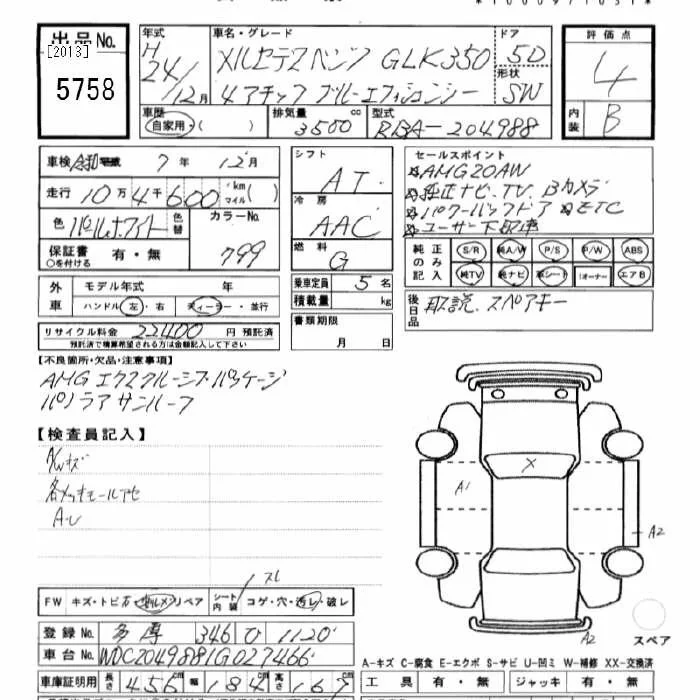 出品No.
[2013]
5758
年式
H
24/
12月
車名・グレード
メルセデスベンツ GLK350
4マチック ブルーエフィシェンシー
ドア
5D
形状
SW
評価点
4
内装
B
車歴
自家用・( )
排気量
3500 cc
型式
RBA-204988
車検 令和 7年 12月
走行 10万4千600 km マイル( )
色 パールホワイト
色替
カラーNo.
799
保証書 有・無
○を付ける
シフト
AT
冷房
AAC
燃料
G
乗車定員 5名
積載量 kg
書類期限
月 日
セールスポイント
AMG20AW
純正ナビ、TV、Bカメラ
パワーバックドア ETC
ユーザー下取車
純正のみ記入
S/R 純A/W P/S P/W ABS
純TV 純ナビ 革シート 1オーナー エアB
後日品
取説、スペアキー
外車
モデル年式 年
ハンドル 左・右 ディーラー・並行
リサイクル料金 22400 円 預託済
預託済で積算希望される方は金額記入して下さい
【不良箇所・欠品・注意事項】
AMGエクスクルーシブパッケージ
パノラマサンルーフ
【検査員記入】
AWキズ
各メッキモールアセ
A・U
X
A1
A2
A2
スペア
スレ
FW キズ・トビ石 リペア
シート内装 コゲ・穴・スレ・破レ
登録No. 多摩 346 ひ 1120
車台No. WDC2049881G027466
車庫証明用 長さ 455 幅 184 高さ 167
A-キズ C-腐食 E-エクボ S-サビ U-凹ミ W-補修 XX-交換済
工具 有・無 ジャッキ 有・無